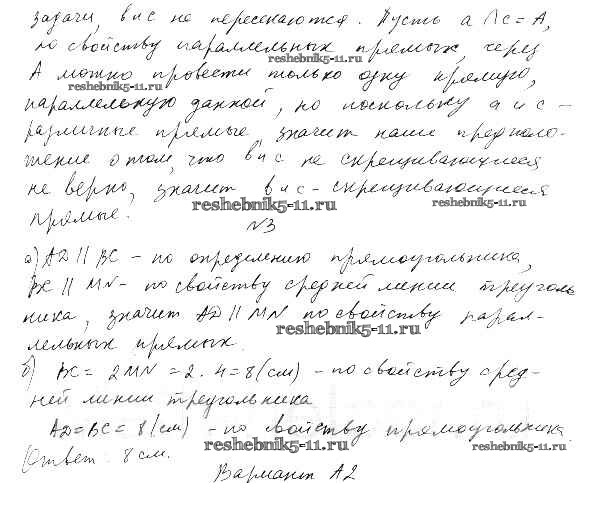 задачи, в и с не пересекаются. Пусть a ∩ c = A,
по свойству параллельных прямых, через
reshebnik5-11.ru
А можно провести только одну прямую,
reshebnik5-11.ru
параллельную данной, но поскольку а и с –
различные прямые, значит наше предполо-
жение о том, что в и с не скрещивающиеся
не верно, значит в и с - скрещивающиеся
reshebnik5-11.ru reshebnik5-11.ru
прямые.
N3
а) AD || BC – по определению прямоугольника,
BC || MN - по свойству средней линии треуголь
ника, значит AD || MN по свойству парал-
reshebnik5-11.ru
лельных прямых.
б) BC = 2MN = 2 · 4 = 8 (см) – по свойству сред-
ней линии треугольника
AD = BC = 8 (см) – по свойству прямоугольника
reshebnik5-11.ru reshebnik5-11.ru
Ответ: 8 см.
Вариант А2